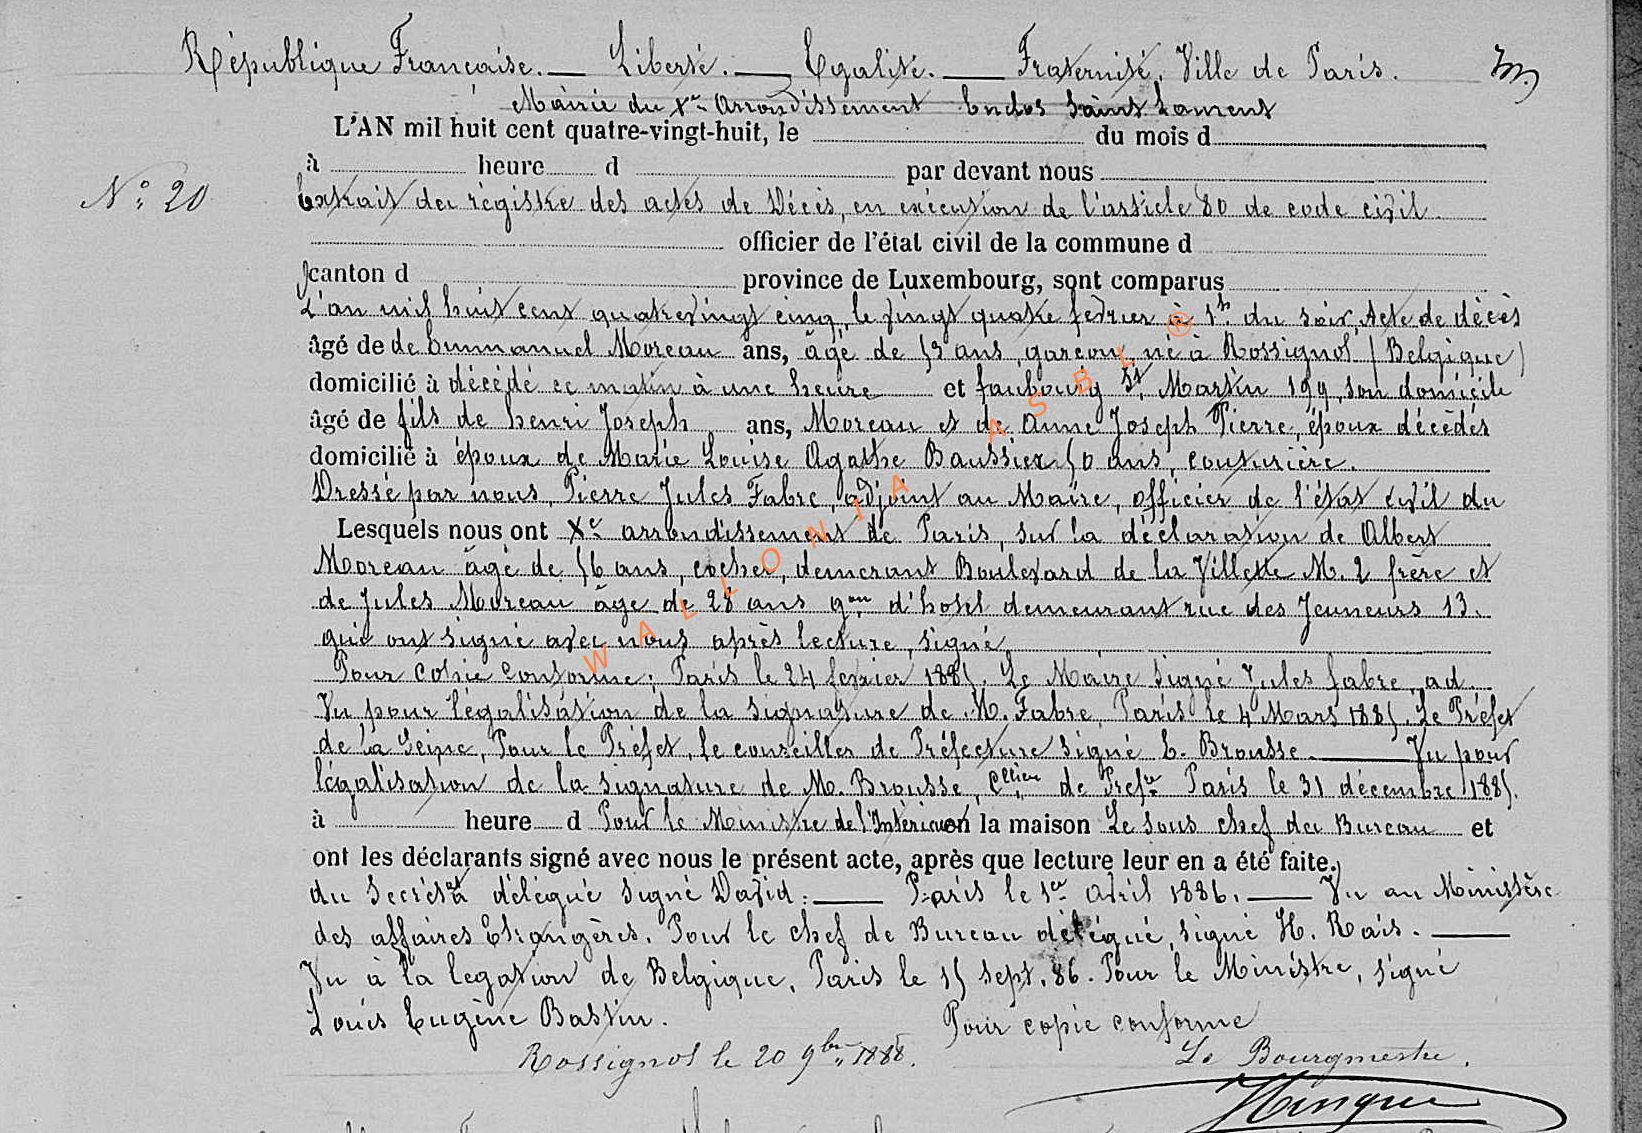 République Française. — Liberté. — Egalité. — Fraternité. Ville de Paris.
Mairie du Xe arrondissement Enclos Saint Laurent
L'AN mil huit cent quatre-vingt-huit, le du mois d
à heure d par devant nous
N° 20 Extrait du régistre des actes de Décès, en exécution de l'article 80 de code civil
officier de l'état civil de la commune d
canton d province de Luxembourg, sont comparus
L'an mil huit cent quatrevingt cinq, le vingt quatre fevrier à 1h du soir, Acte de décès
âgé de de Emmanuel Moreau ans, âgé de 53 ans, garçon, né à Rossignol (Belgique)
domicilié à décédé ce matin à une heure et faubourg St Martin 199, son domicile
âgé de fils de henri Joseph ans, Moreau et de Anne Joseph Pierre, époux décédés
domicilié à époux de Marie Louise Agathe Baussier 50 ans, couturière.
Dressé par nous, Pierre Jules Fabre, adjoint au Maire, officier de l'état civil du
Lesquels nous ont Xe arrondissement de Paris, sur la déclaration de Albert
Moreau âgé de 56 ans, cocher, demerant Boulevard de la Villette N. 2 frère et
de Jules Moreau âge de 28 ans gon d'hotel demeurant rue des Jeuneurs 13.
qui ont signé avec nous après lecture, signé
Pour copie conforme; Paris le 24 fevrier 1885. Le Maire signé Jules fabre, ad.
Vu pour légalisation de la signature de M. Fabre, Paris le 4 Mars 1885. Le Préfet
de la Seine, Pour le Préfet, le conseiller de Préfecture signé E. Brousse. — Vu pour
légalisation de la signature de M. Brousse, de Prefre Paris le 31 décembre 1885.
à heure d Pour le Ministre de l'Intérieur en la maison Le sous chef du Bureau et
ont les déclarants signé avec nous le présent acte, après que lecture leur en a été faite.
du Secrétat délégué signé David: — Paris le 1er avril 1886. — Vu au Ministère
des affaires Etrangères. Pour le chef de Bureau délégué, signé H. Rais. —
Vu à la legation de Belgique, Paris le 15 sept. 86. Pour le Ministre, signé
Louis Eugène Bastin. Pour copie conforme
Rossignol le 20 9bre 1888. Le Bourgmestre,
Hinque
WALLONIA ASBL ®